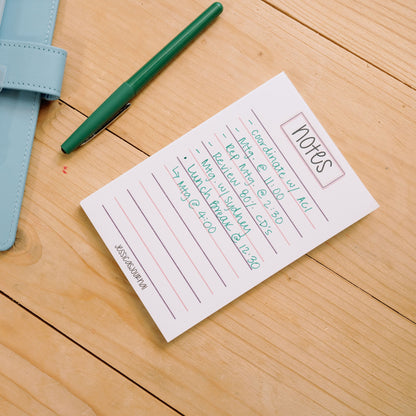 notes
- coordinate w/ ACI
- Mtg. @ 11:00
Rep Mtg. @ 2:30
- Review 80% CD's
- Mtg. w/ Sydney
• Lunch break @ 12:30
↳ Mtg @ 4:00
jessicasjournal